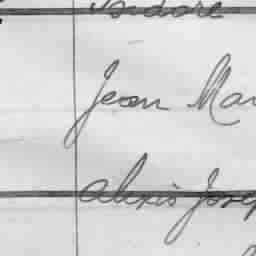 Isidore
Jean Mar
Alexis Josep